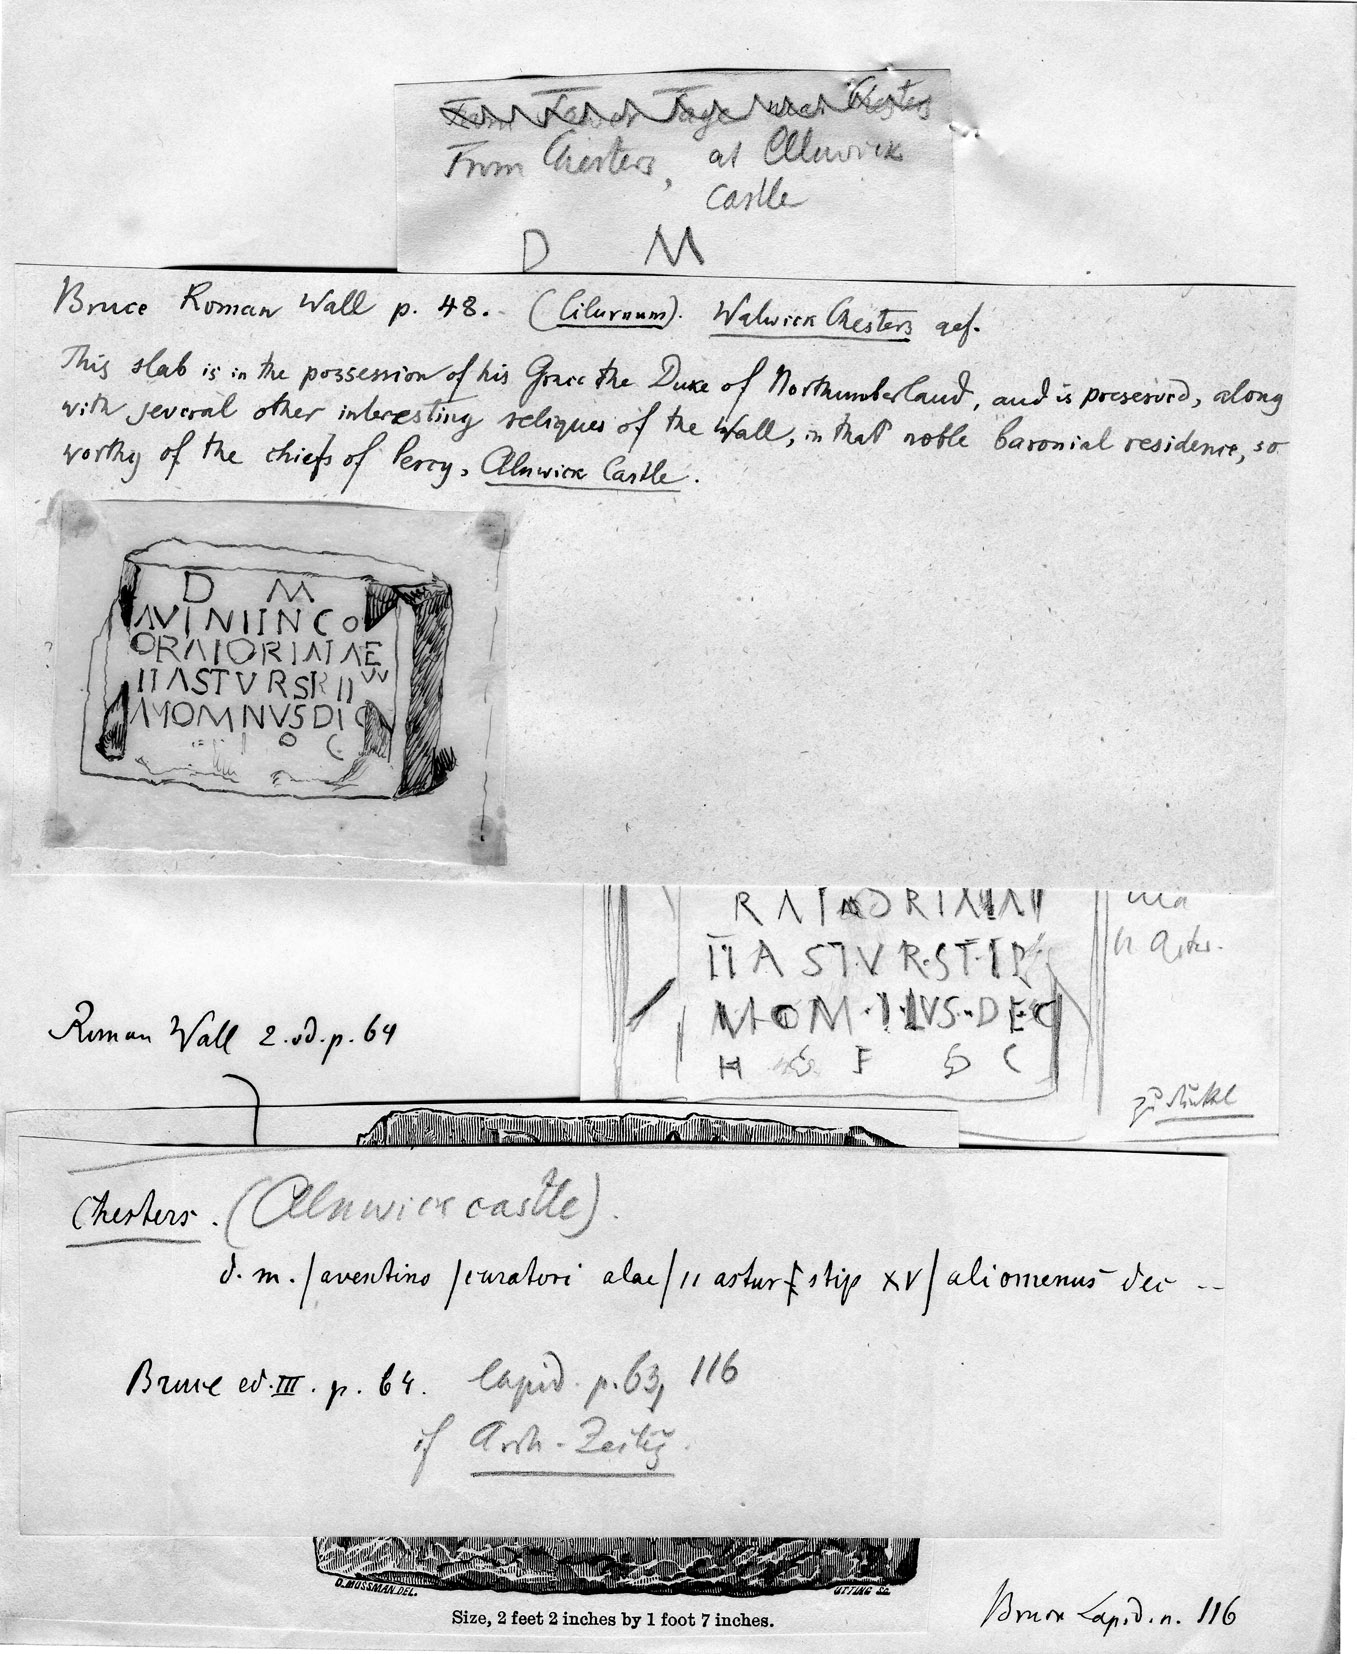 From Chesters, at Alnwick
Castle
D M
Bruce Roman Wall p. 48. (Cilurnum). Walwick Chesters gef.
This slab is in the possession of his Grace the Duke of Northumberland, and is preserved, along
with several other interesting reliques of the Wall, in that noble baronial residence, so
worthy of the chiefs of Percy, Alnwick Castle.
D M
AVINIINCO
ORAIORIAIAE
IIASTVRSRII
AMOMNVSDIC
I O C
II ASTVR·STIP
MOM·ILVS·DEC
H F C
Roman Wall 2. ed. p. 64
Chesters. (Alnwick castle).
d. m. / aventino / curatori alae / II astur stip XV / aliomenus dec --
Bruce ed. III. p. 64. Lapid. p. 63, 116
cf Arch. Zeitg.
D. MOSSMAN DEL. UTTING SC.
Size, 2 feet 2 inches by 1 foot 7 inches.
Bruce Lapid. n. 116